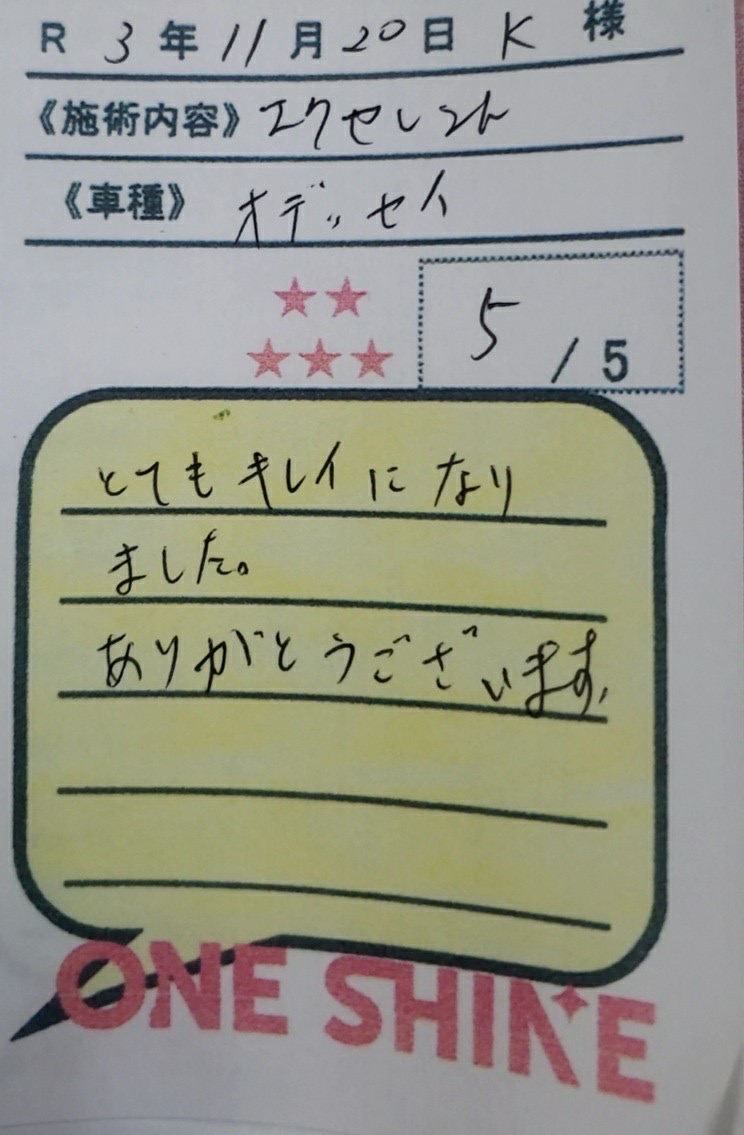 R 3年11月20日 K 様
《施術内容》エクセレント
《車種》オデッセイ
★★
★★★
5/5
とてもキレイになり
ました。
ありがとうございます。
ONE SHINE